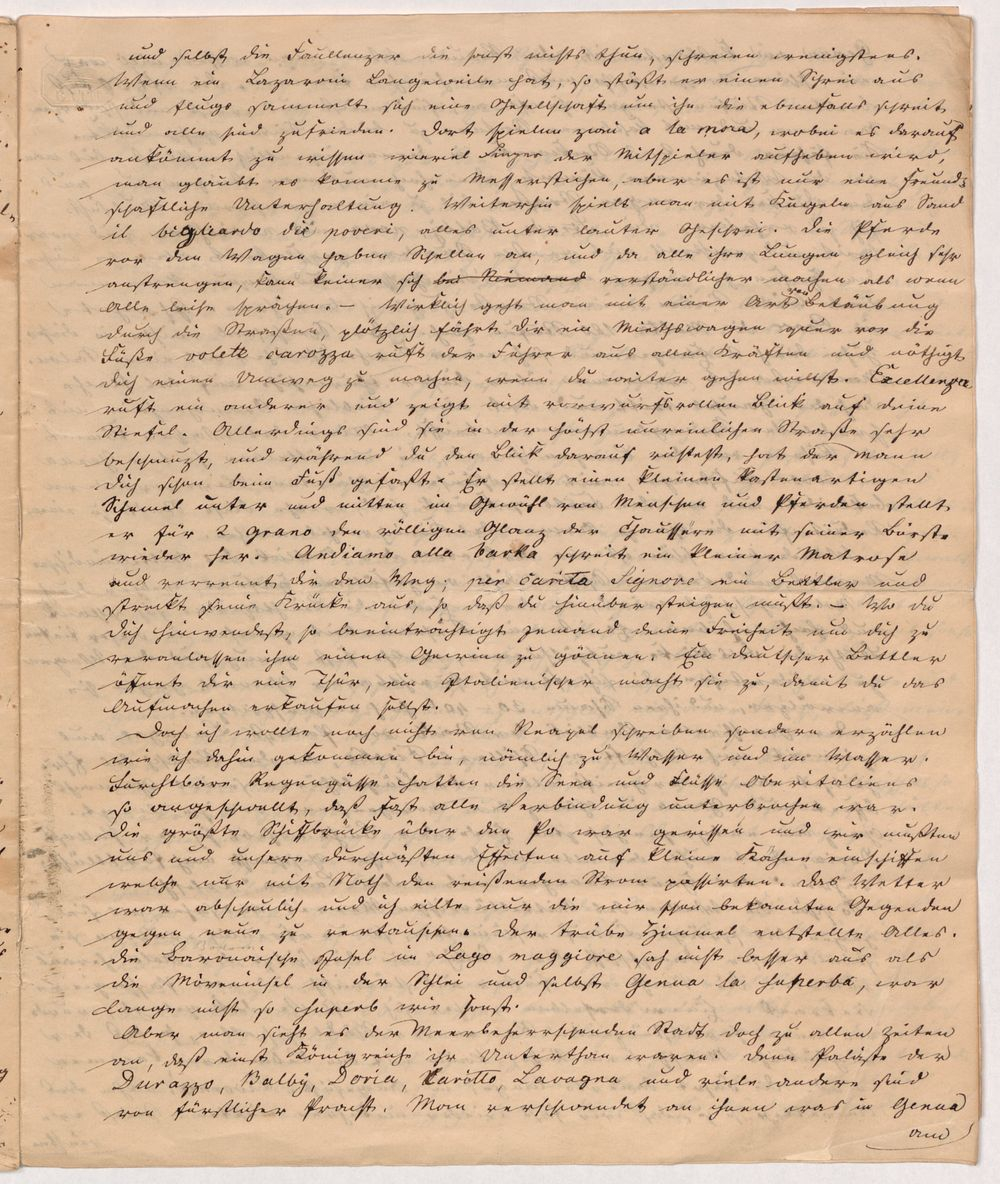 und selbst die Faullenzer die sonst nichts thun, schreien wenigstens.
Wenn ein Lazaroni Langeweile hat, so stößt er einen Schrei aus
und flugs sammelt sich eine Gesellschaft um ihn die ebenfalls schreit
und alle sind zufrieden. Dort spielen zwei a la mora, wobei es darauf
ankömmt zu wissen wieviel Finger der Mitspieler aufheben wird,
man glaubt es komme zu Messerstichen, aber es ist nur eine freund-
schaftliche Unterhaltung. Weiterhin spielt man mit Kugeln aus Sand
il bigliardo dei poveri, alles unter lauter Geschrei. Die Pferde
vor den Wagen haben Schellen an, und da alle ihre Lungen gleich sehr
anstrengen, kann keiner sich bei Niemand verständlicher machen als wenn
Alle leise sprächen. – Wirklich geht man mit einer Art von Betäubung
durch die Strassen, plötzlich fährt dir ein Miethswagen quer vor die
Füße volete carozza ruft der Führer aus allen Kräften und nöthigt
dich einen Umweg zu machen, wenn du weiter gehen willst. Excellenza
ruft ein anderer und zeigt mit vorwurfsvollen Blick auf deine
Stiefel. Allerdings sind sie in der höchst unreinlichen Straße sehr
beschmuzt, und während du den Blick darauf richtest, hat der Mann
dich schon beim Fuß gefaßt. Er stellt einen kleinen kastenartigen
Schemel unter und mitten im Gewühl von Menschen und Pferden stellt
er für 2 Grano den völligen Glanz der Chaussure mit seiner Bürste
wieder her. Andiamo alla barka schreit ein kleiner Matrose
und verrennt dir den Weg; per carita Signore ein Bettler und
streckt seine Krücke aus, so daß du hinüber steigen mußt. – Wo du
dich hinwendest, so beeinträchtigt jemand deine Freiheit um dich zu
veranlassen ihm einen Gewinn zu gönnen. Ein deutscher Bettler
öffnet dir eine Thür, ein Italienischer macht sie zu, damit du das
Aufmachen erkaufen sollst.
Doch ich wollte noch nicht von Neapel schreiben sondern erzählen
wie ich dahin gekommen bin, nämlich zu Wasser und im Wasser.
Furchtbare Regengüsse hatten die Seen und Flüsse Oberitaliens
so angeschwellt, daß fast alle Verbindung unterbrochen war.
Die größte Schiffbrücke über den Po war gerissen und wir mußten
uns und unsere durchnäßten Effecten auf kleine Kähne einschiffen
welche nur mit Noth den reißenden Strom passirten. Das Wetter
war abscheulich und ich eilte nur die mir schon bekannten Gegenden
gegen neue zu vertauschen. Der trübe Himmel entstellte Alles.
die Baronäische Insel im Lago maggiore sah nicht besser aus als
die Möveninsel in der Schlei und selbst Genua la superba, war
lange nicht so superb wie sonst.
Aber man sieht es der Meerbeherrschenden Stadt doch zu allen Zeiten
an, daß einst Königreiche ihr Unterthan waren. Denn Paläste der
Durazzo, Balby, Doria, Lavagna und viele andere sind
von fürstlicher Pracht. Man verschwendet an ihnen was in Genua
am